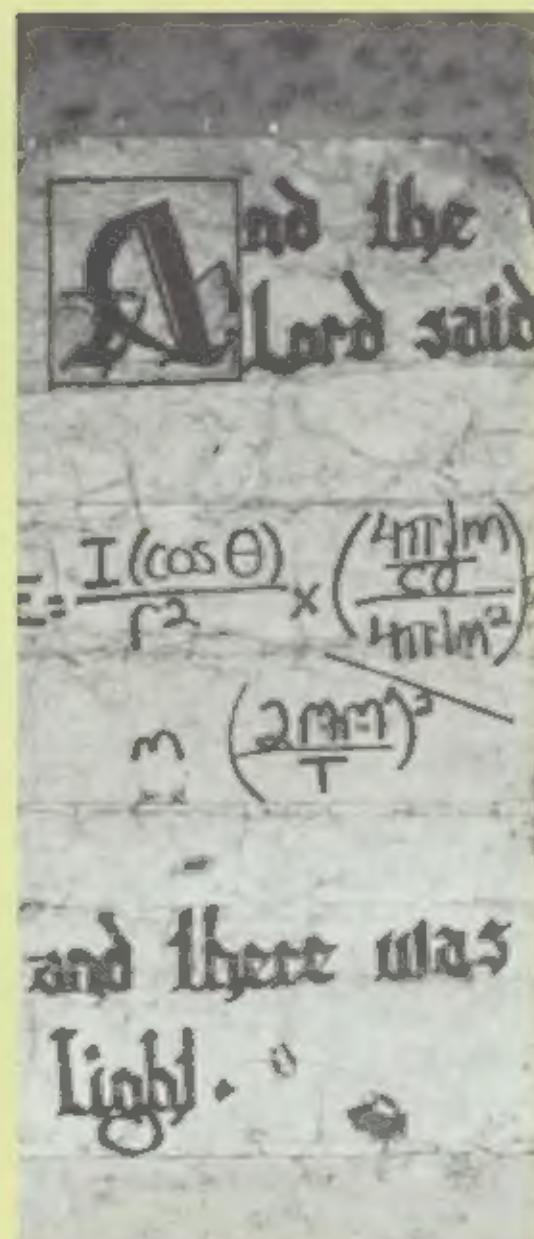 And the
Lord said
E = I(cos θ) / r² × (4π lm / cd / 4π m²)
and there was
Light.